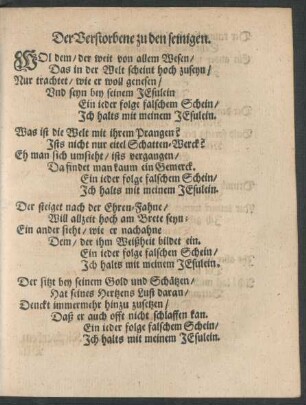 Der Verstorbene zu den seinigen.
WOl dem / der weit von allem Wesen /
Das in der Welt scheint hoch zuseyn /
Nur trachtet / wie er woll genesen /
Vnd seyn bey seinem JEsulein
Ein ieder folge falschem Schein /
Jch halts mit meinem JEsulein.
Was ist die Welt mit ihrem Prangen?
Jsts nicht nur eitel Schatten-Werck?
Eh man sich umsieht / ists vergangen /
Da findet man kaum ein Gemerck.
Ein ieder folge falschem Schein /
Jch halts mit meinem JEsulein.
Der steiget nach der Ehren-Fahne /
Will allzeit hoch am Brete seyn:
Ein ander sieht / wie er nachahne
Dem / der ihm Weißheit bildet ein.
Ein ieder folge falschen Schein /
Jch halts mit meinem JEsulein.
Der sitzt bey seinem Gold und Schätzen /
Hat seines Hertzens Lust daran /
Denckt immermehr hinzu zusetzen /
Daß er auch offt nicht schlaffen kan.
Ein ieder folge falschem Schein /
Jch halts mit meinem JEsulein.